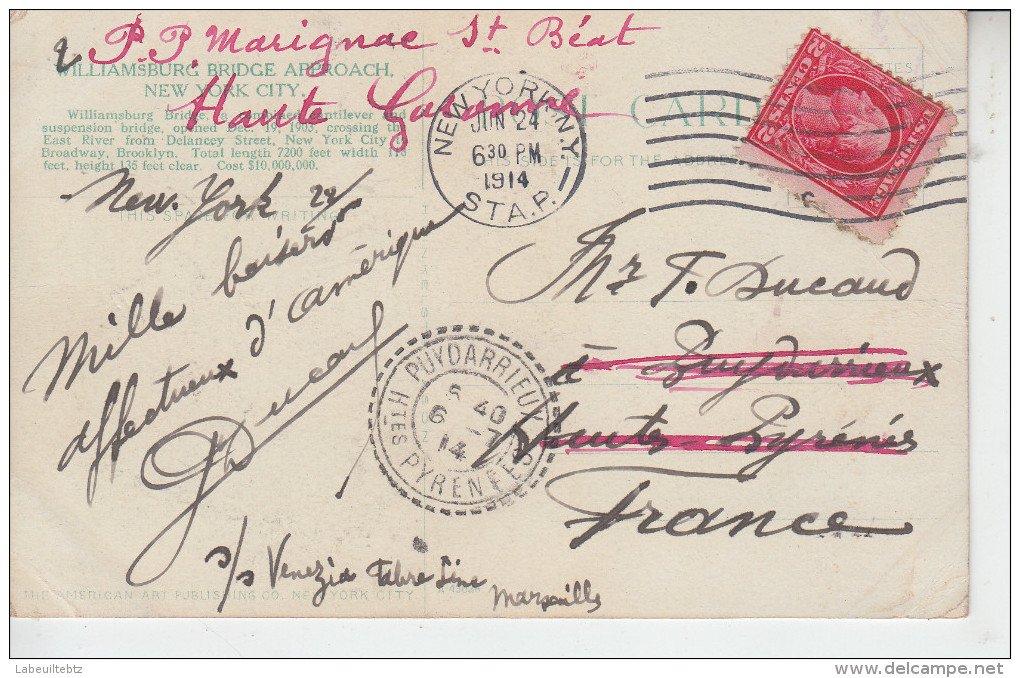 P.P. Marignac St Béat
Haute Garonne
WILLIAMSBURG BRIDGE APPROACH,
NEW YORK CITY.
Williamsburg Bridge, combined cantilever and
suspension bridge, opened Dec. 19, 1903, crossing the
East River from Delancey Street, New York City to
Broadway, Brooklyn. Total length 7200 feet width 118
feet, height 135 feet clear. Cost $10,000,000.
CARD
THIS SIDE IS FOR THE ADDRESS
NEW YORK, N.Y.
JUN 24
6 30 PM
1914
STA. P.
U.S. POSTAGE
2 CENTS 2
THIS SPACE FOR WRITING
New-York 24
Mille baisers
affectueux d'amérique
Ducaud
Mr F. Ducaud
à Puydarrieux
Hautes-Pyrénées
France
PUYDARRIEUX
8 40
6 -7
14
HTES PYRENEES
s/s Venezia Fabre Line
Marseille
THE AMERICAN ART PUBLISHING CO. NEW YORK CITY.
Labeuiltebtz
delcampe.net